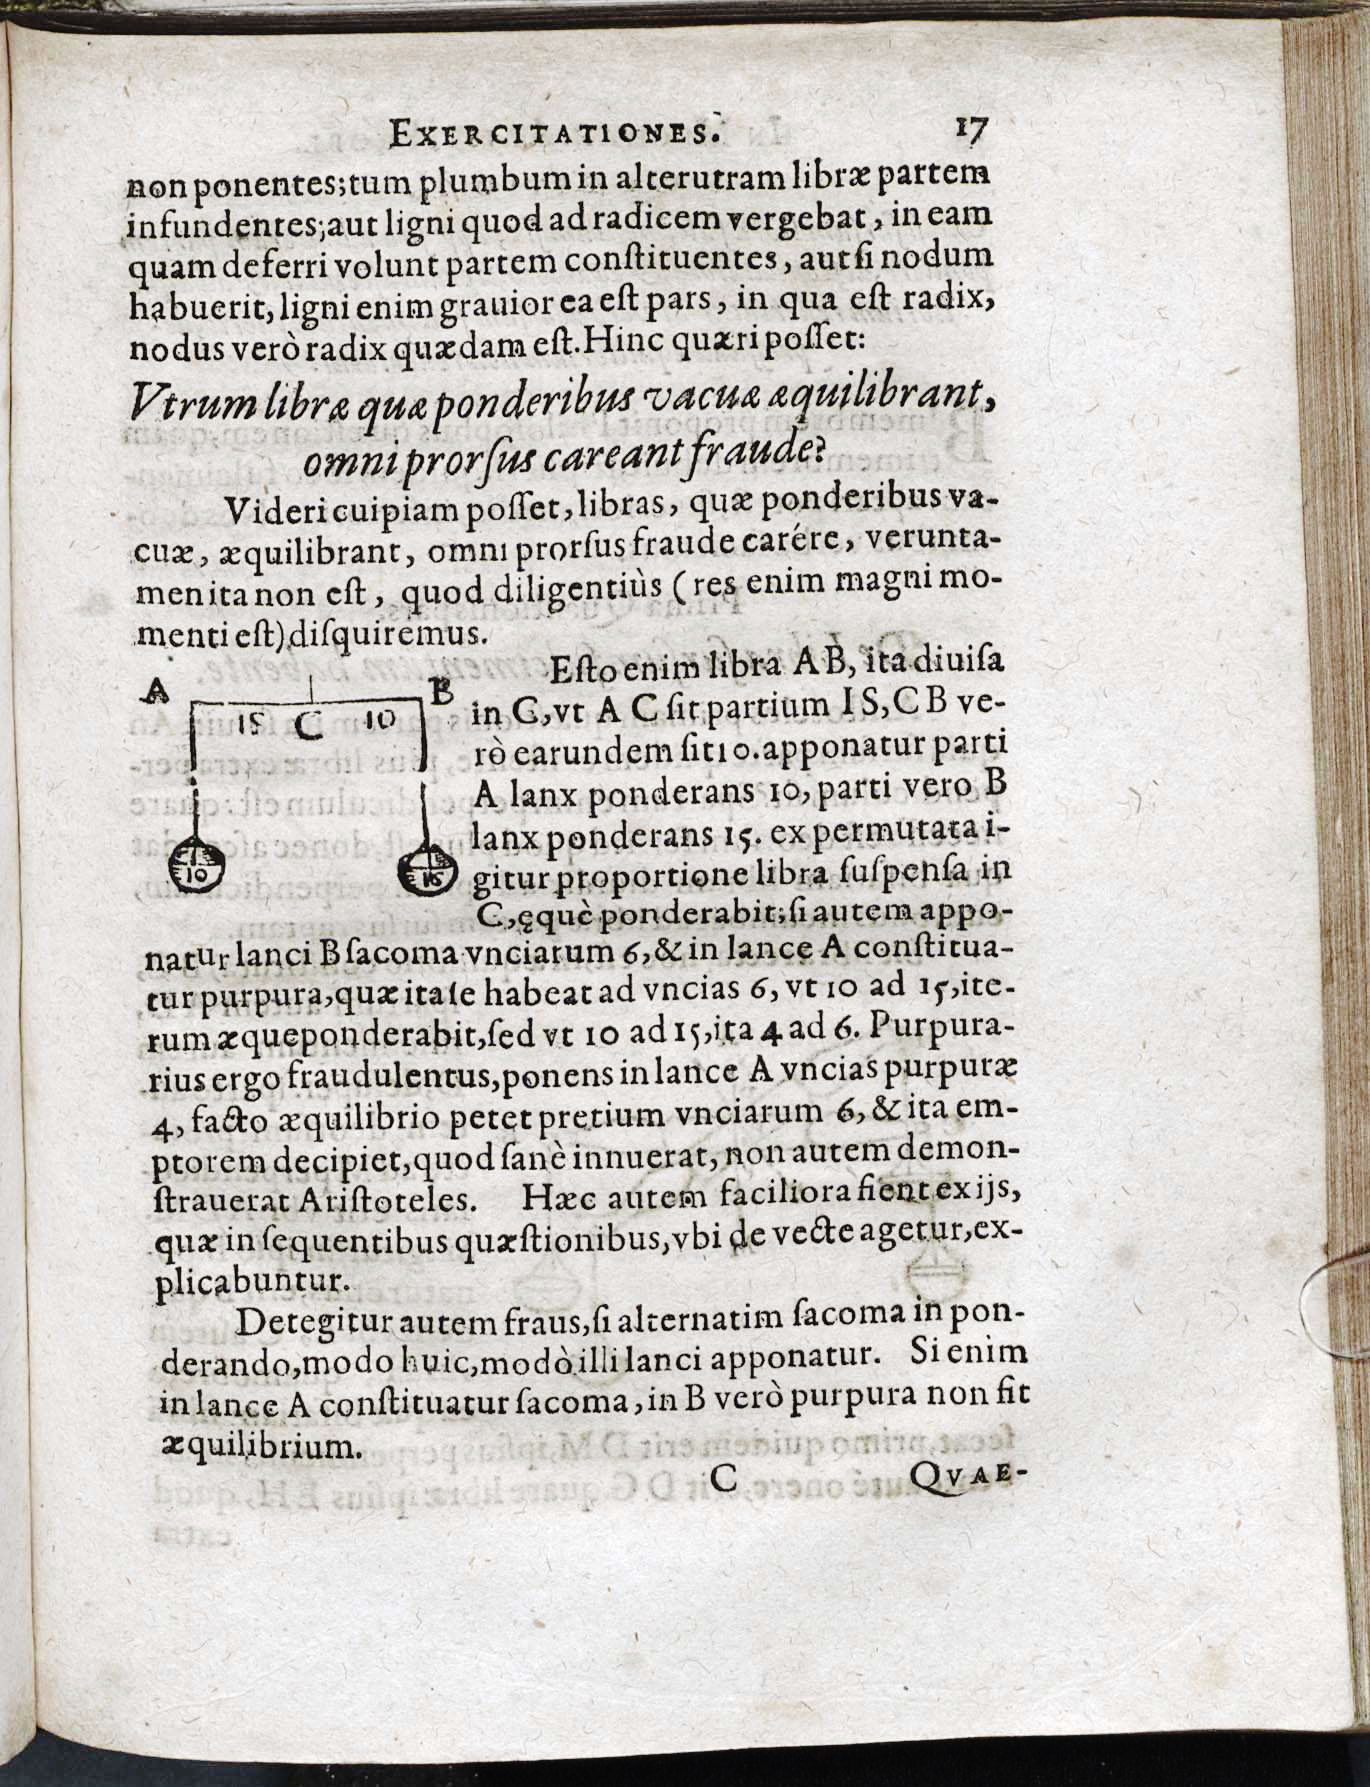 EXERCITATIONES. 17
non ponentes; tum plumbum in alterutram libræ partem
infundentes; aut ligni quod ad radicem vergebat, in eam
quam deferri volunt partem conſtituentes, aut ſi nodum
habuerit, ligni enim grauior ea eſt pars, in qua eſt radix,
nodus verò radix quædam eſt. Hinc quæri poſſet:
Vtrum libræ quæ ponderibus vacuæ æquilibrant,
omni prorſus careant fraude?
Videri cuipiam poſſet, libras, quæ ponderibus va-
cuæ, æquilibrant, omni prorſus fraude carére, verunta-
men ita non eſt, quod diligentiùs (res enim magni mo-
menti eſt) diſquiremus.
A B
15 C 10
10 15
Eſto enim libra A B, ita diuiſa
in C, vt A C ſit partium I S, C B ve-
rò earundem ſit 10. apponatur parti
A lanx ponderans 10, parti vero B
lanx ponderans 15. ex permutata i-
gitur proportione libra ſuſpenſa in
C, ęquè ponderabit; ſi autem appo-
natur lanci B ſacoma vnciarum 6, & in lance A conſtitua-
tur purpura, quæ ita ſe habeat ad vncias 6, vt 10 ad 15, ite-
rum æqueponderabit, ſed vt 10 ad 15, ita 4 ad 6. Purpura-
rius ergo fraudulentus, ponens in lance A vncias purpuræ
4, facto æquilibrio petet pretium vnciarum 6, & ita em-
ptorem decipiet, quod ſanè innuerat, non autem demon-
ſtrauerat Ariſtoteles. Hæc autem faciliora fient ex ijs,
quæ in ſequentibus quæſtionibus, vbi de vecte agetur, ex-
plicabuntur.
Detegitur autem fraus, ſi alternatim ſacoma in pon-
derando, modo huic, modò illi lanci apponatur. Si enim
in lance A conſtituatur ſacoma, in B verò purpura non fit
æquilibrium.
C QVAE-